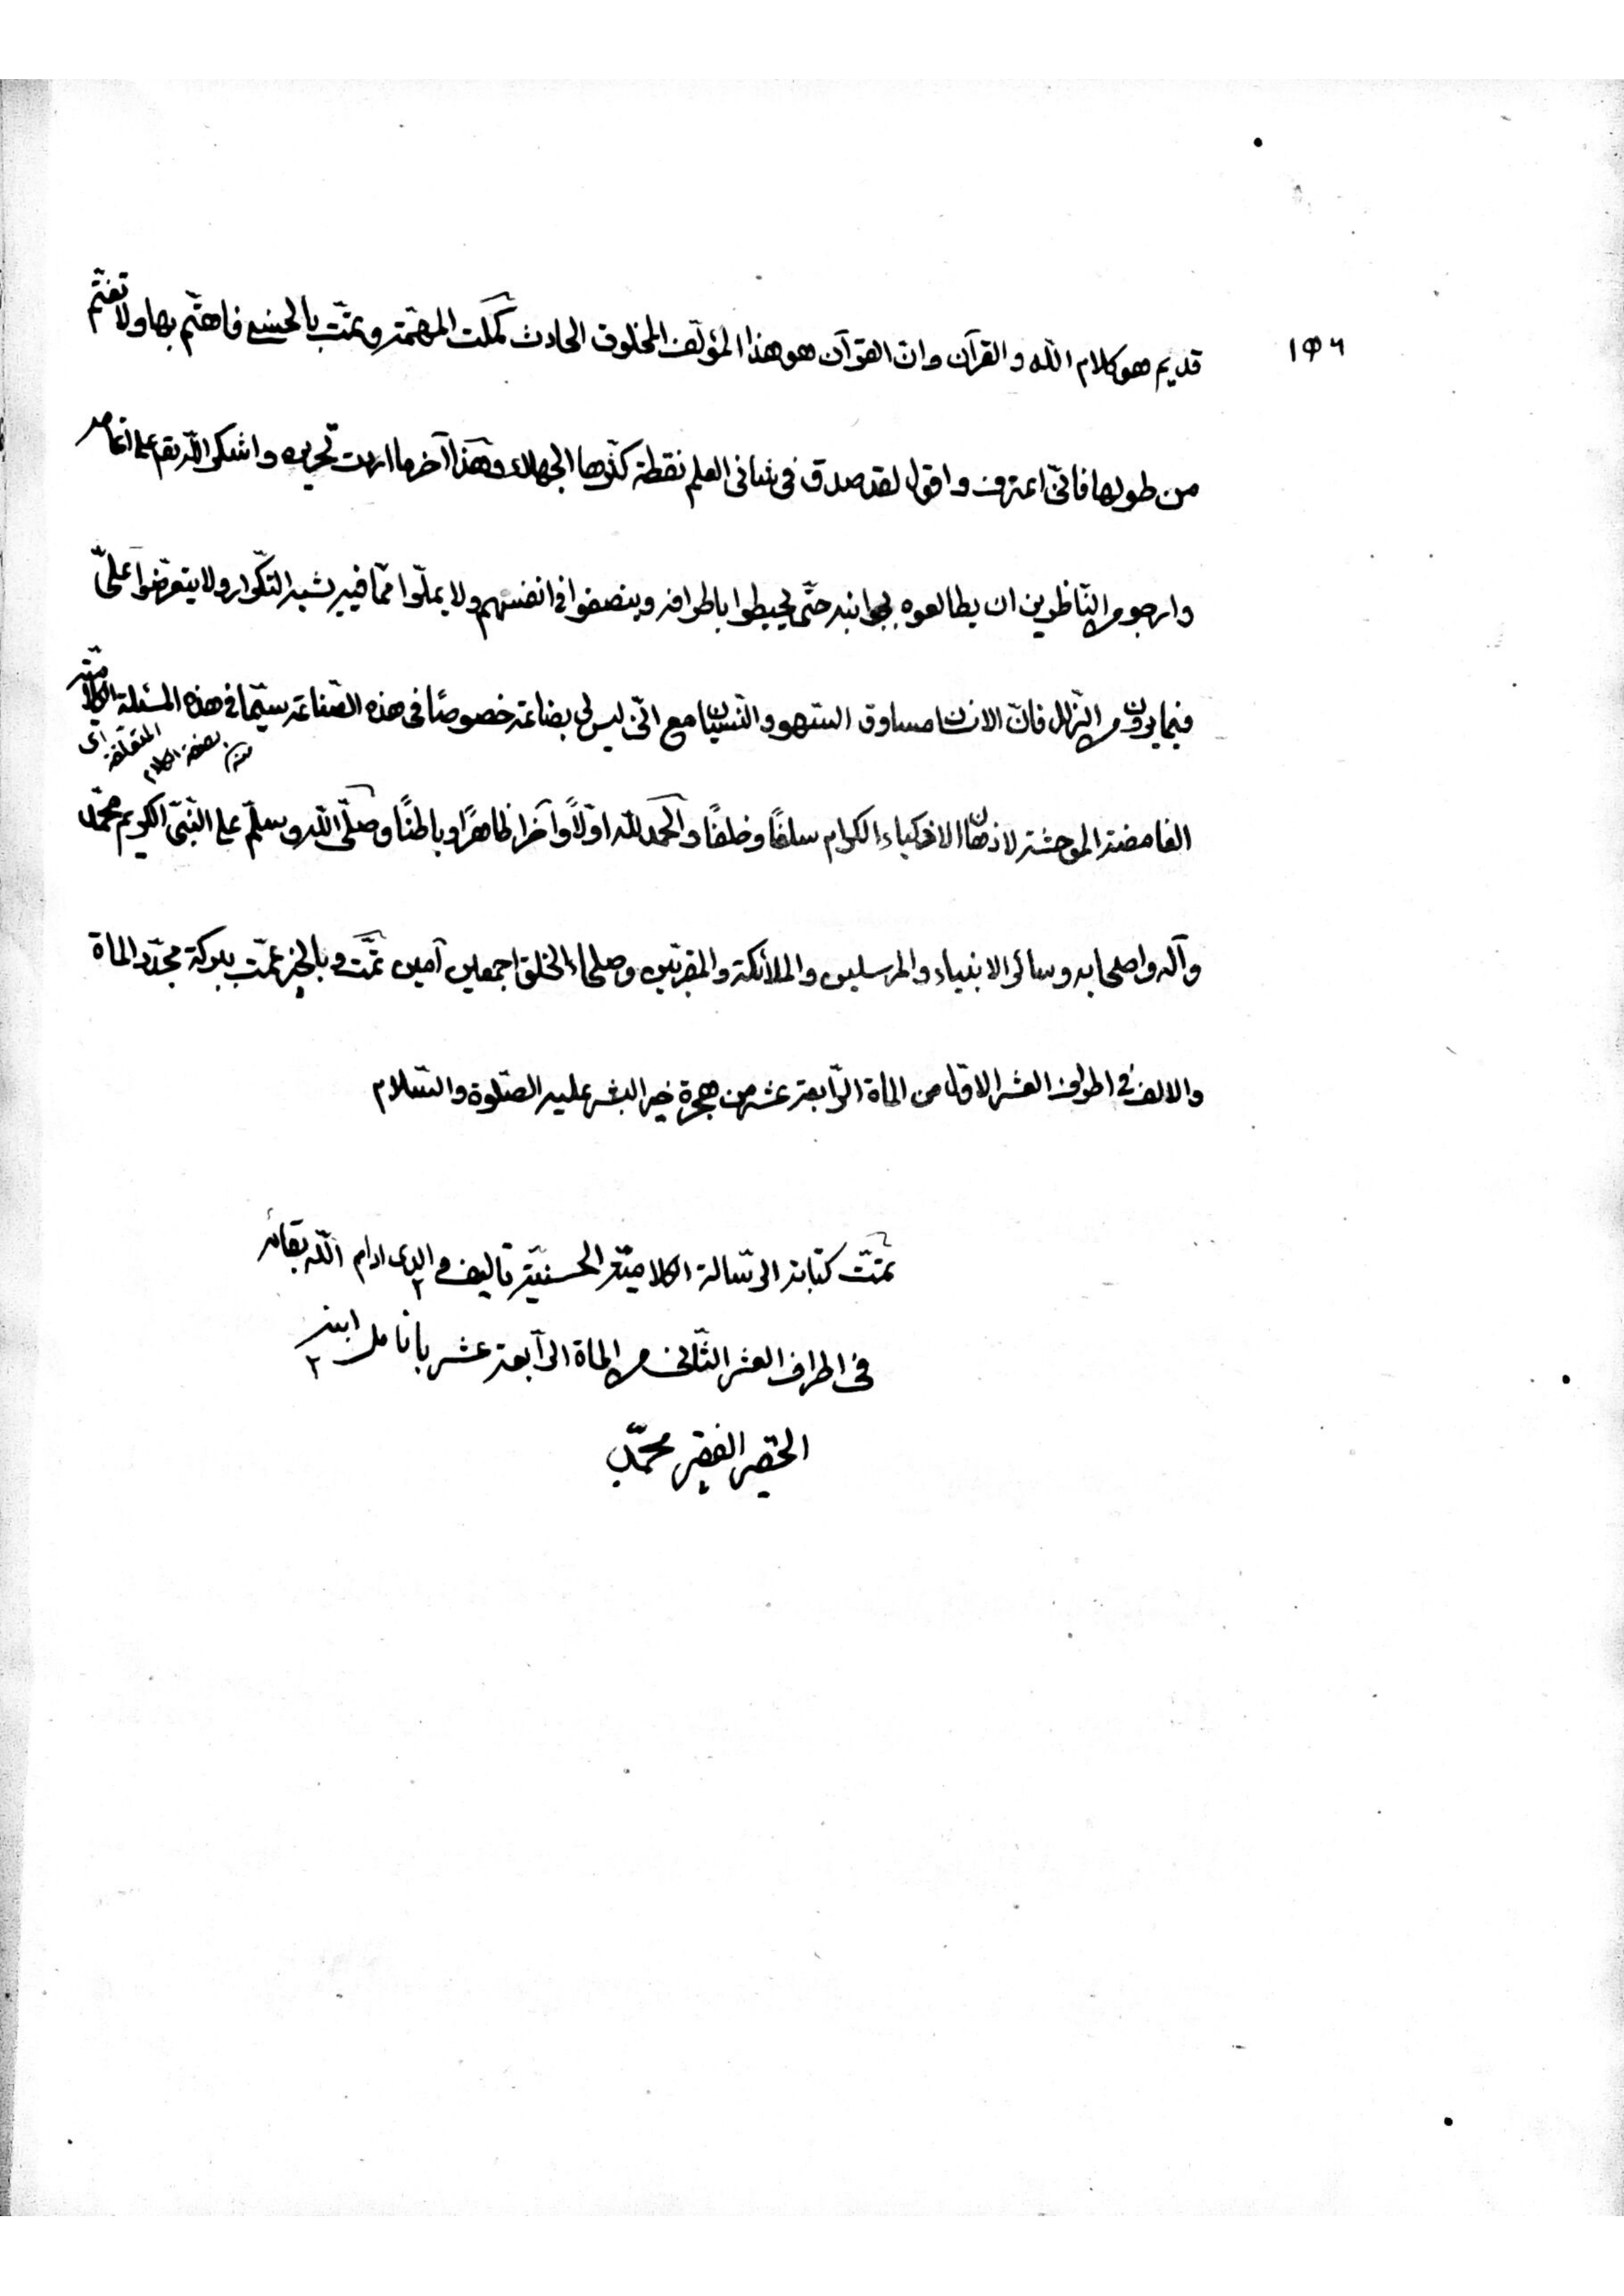 ١٥٦
قديم هو كلام الله والقرآن وان القرآن هو هذا المؤلّف المخلوق الحادث كملت المهمّة وتمّت بالحسنى فاهتم بها ولا تغتم
من طولها فانّى اعترف واقول لقد صدق فى شانى العلم نقطة كثّرها الجهلاء وهذا آخر ما اردت تحريره واشكر الله تعم على انعامه
وارجو من النّاظرين ان يطالعوه بجوانبه حتّى يحيطوا باطرافه وينصفوا فى انفسهم ولا يملّوا ممّا فيه شبه التكرار ولا يتعرّضوا علىّ
فيما يرون من الزلل فانّ الانسان مساوق السّهو والنّسيان مع انّى ليس لى بضاعة خصوصًا فى هذه الصّناعة سيّما فى هذه المسئلة الكلاميّة
اى المتعلّقة بصفة الكلام منه
الغامضة الموحشة لاذهان الاذكياء الكرام سلفًا وخلفًا والحمد لله اوّلاً وآخرا ظاهرًا وباطنًا وصلّى الله وسلّم على النّبىّ الكريم محمّد
وآله واصحابه وسائر الانبياء والمرسلين والملائكة والمقرّبين وصلحاء الخلق اجمعين آمين تمّت وبالخير عمّت ببركة مجدّد المأة
والالف فى اطراف العشر الاوّل من المأة الرّابعة عشر من هجرة خير البشر عليه الصّلوة والسّلام
تمّت كتابة الرّسالة الكلاميّة الحسنيّة تاليف والدى ادام الله بقائه
فى اطراف العشر الثّانى من المأة الرّابعة عشر بانامل ابنه
الحقير الفقير محمّد